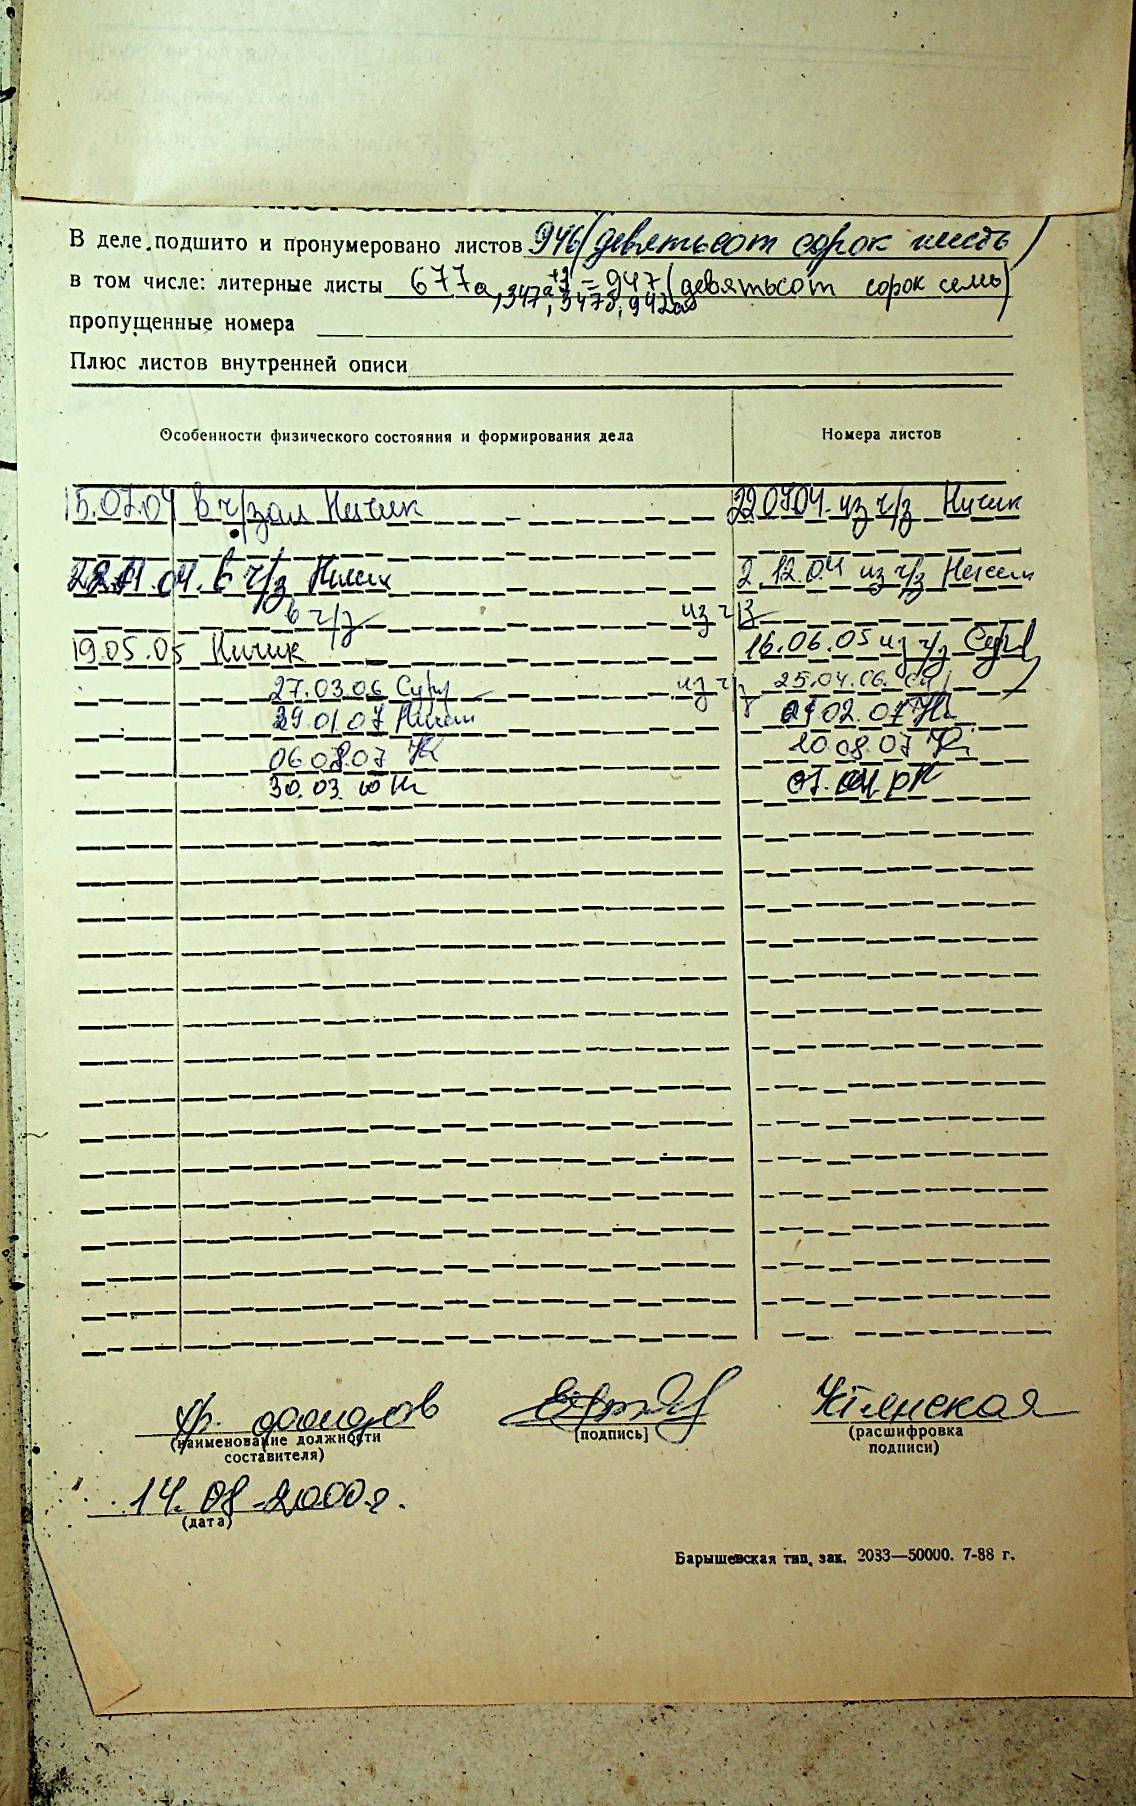 В деле подшито и пронумеровано листов 946 (девятьсот сорок шесть)
в том числе: литерные листы 677а +3 = 947 (девятьсот сорок семь)
, 347а, 347б, 942а
пропущенные номера
Плюс листов внутренней описи
Особенности физического состояния и формирования дела Номера листов
15.07.04 в ч/зал Ничик 22.07.04 из ч/з Ничик
22.11.04. в ч/з Ничик 2.12.04 из ч/з Ничик
в ч/з из ч/з
19.05.05 Ничик 16.06.05 из ч/з
27.03.06 из ч/з 25.04.06.
29.01.07 Ничик 02.07
06.08.07 10.08.07
30.03.10
архивов Устянская
(наименование должности (подпись) (расшифровка
составителя) подписи)
14.08-2000г.
(дата)
Барышевская тип. зак. 2033—50000. 7-88 г.